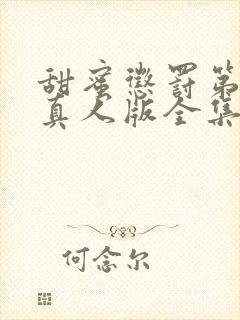 甜蜜惩罚第
真人版全集
何念尔